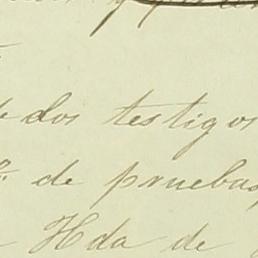 dos testigos
de pruebas,
Hda de